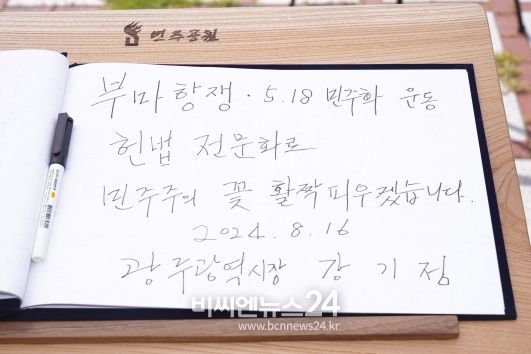 민주공원
부마항쟁 · 5.18 민주화 운동
헌법 전문화로
민주주의 꽃 활짝 피우겠습니다.
2024. 8. 16
광주광역시장 강기정
비씨엔뉴스24
www.bcnnews24.kr